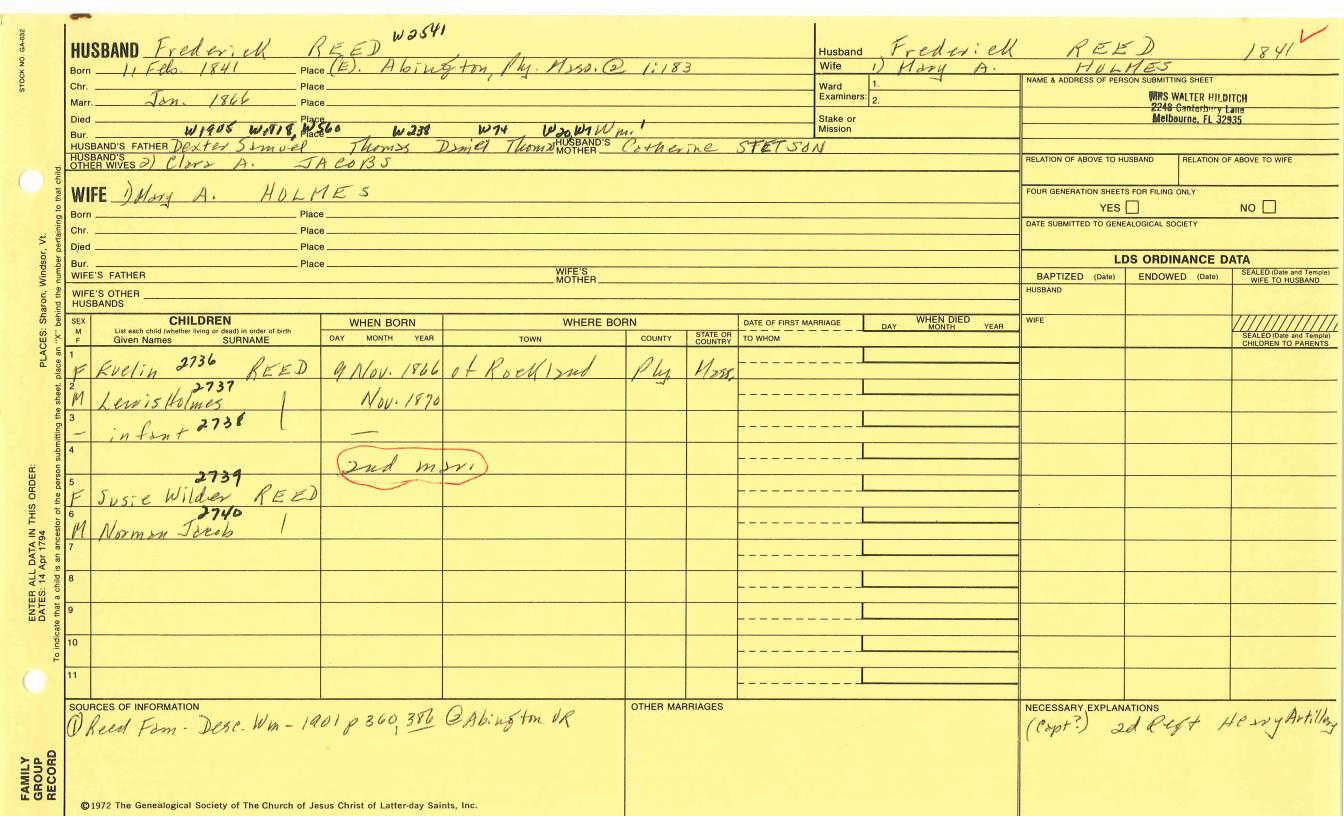 STOCK NO. GA-032
PLACES: Sharon, Windsor, Vt.
ENTER ALL DATA IN THIS ORDER:
DATES: 14 Apr 1794
To indicate that a child is an ancestor of the person submitting the sheet, place an "X" behind the number pertaining to that child.
FAMILY GROUP RECORD
HUSBAND Frederick REED W2541
Born 11 Feb. 1841 Place (E). Abington, Ply. Mass. @ 1:183
Chr. Place
Marr. Jan. 1866 Place
Died Place
Bur. Place
W1905 W1818 W560 W238 W74 W20, W1 Wm. 1
HUSBAND'S FATHER Dexter Samuel Thomas Daniel Thomas HUSBAND'S MOTHER Catherine STETSON
HUSBAND'S OTHER WIVES 2) Clara A. JACOBS
WIFE 1) Mary A. HOLMES
Born Place
Chr. Place
Died Place
Bur. Place
WIFE'S FATHER WIFE'S MOTHER
WIFE'S OTHER HUSBANDS
Husband Frederick REED 1841
Wife 1) Mary A. HOLMES
Ward Examiners: 1. 2.
Stake or Mission
NAME & ADDRESS OF PERSON SUBMITTING SHEET
MRS WALTER HILDITCH
2248 Canterbury Lane
Melbourne, FL 32935
RELATION OF ABOVE TO HUSBAND RELATION OF ABOVE TO WIFE
FOUR GENERATION SHEETS FOR FILING ONLY
YES NO
DATE SUBMITTED TO GENEALOGICAL SOCIETY
LDS ORDINANCE DATA
BAPTIZED (Date) ENDOWED (Date) SEALED (Date and Temple) WIFE TO HUSBAND
HUSBAND
WIFE
SEALED (Date and Temple) CHILDREN TO PARENTS
SEX M F
CHILDREN
List each child (whether living or dead) in order of birth
Given Names SURNAME
WHEN BORN
DAY MONTH YEAR
WHERE BORN
TOWN COUNTY STATE OR COUNTRY
DATE OF FIRST MARRIAGE
TO WHOM
WHEN DIED
DAY MONTH YEAR
1 F Evelin 2736 REED 9 Nov. 1866 of Rockland Ply Mass.
2 M Lewis Holmes 2737 Nov. 1870
3 – infant 2738 —
4 2nd mar.
5 F Susie Wilder 2739 REED
6 M Norman Jacob 2740
7
8
9
10
11
SOURCES OF INFORMATION
① Reed Fam - Desc. Wm - 1901 p 360, 386 @ Abington VR
OTHER MARRIAGES
NECESSARY EXPLANATIONS
(Capt?) 2d Regt Heavy Artillery
©1972 The Genealogical Society of The Church of Jesus Christ of Latter-day Saints, Inc.